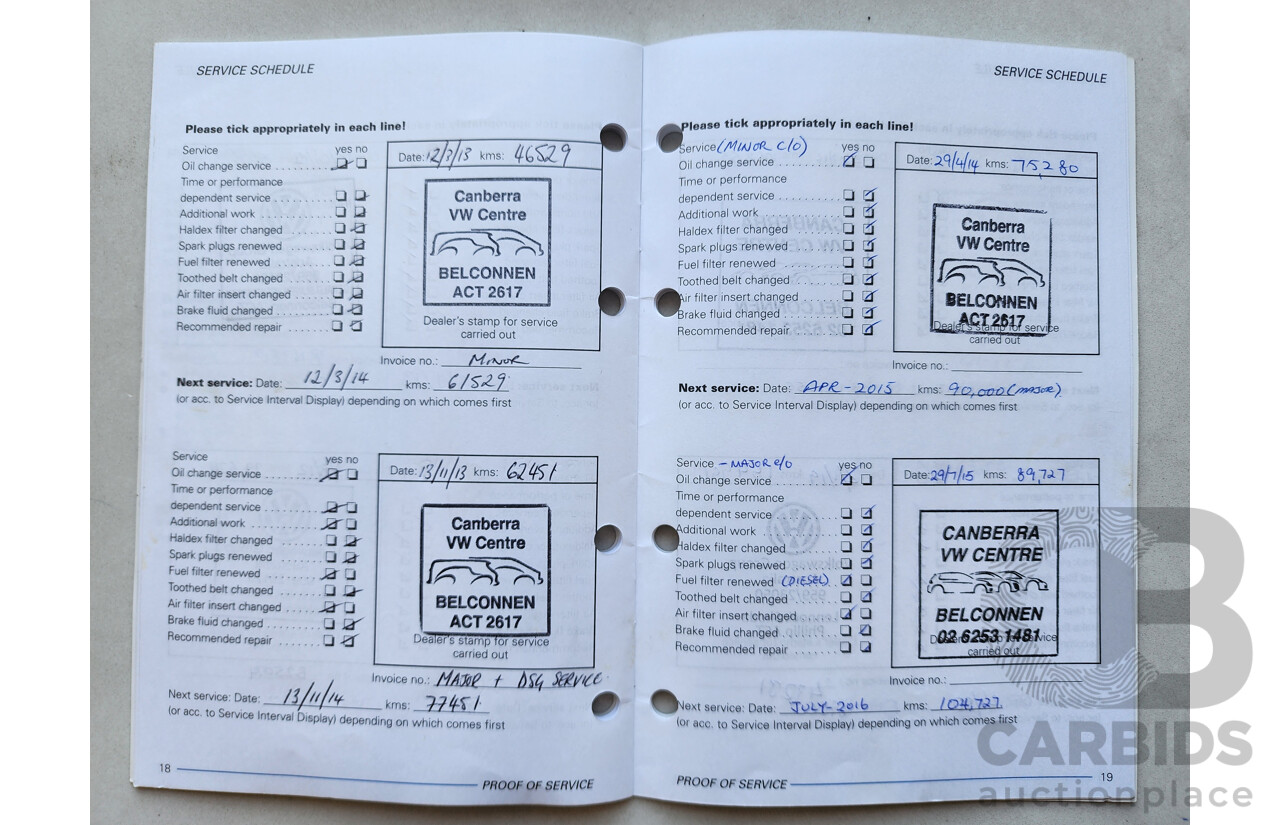 SERVICE SCHEDULE
Please tick appropriately in each line!
Service yes no
Oil change service
Time or performance
dependent service
Additional work
Haldex filter changed
Spark plugs renewed
Fuel filter renewed
Toothed belt changed
Air filter insert changed
Brake fluid changed
Recommended repair
Date: 12/3/13 kms: 46529
Canberra
VW Centre
BELCONNEN
ACT 2617
Dealer's stamp for service
carried out
Invoice no.: MINOR
Next service: Date: 12/3/14 kms: 61529
(or acc. to Service Interval Display) depending on which comes first
Service yes no
Oil change service
Time or performance
dependent service
Additional work
Haldex filter changed
Spark plugs renewed
Fuel filter renewed
Toothed belt changed
Air filter insert changed
Brake fluid changed
Recommended repair
Date: 13/11/13 kms: 62451
Canberra
VW Centre
BELCONNEN
ACT 2617
Dealer's stamp for service
carried out
Invoice no.: MAJOR + DSG SERVICE
Next service: Date: 13/11/14 kms: 77451
(or acc. to Service Interval Display) depending on which comes first
18
PROOF OF SERVICE
SERVICE SCHEDULE
Please tick appropriately in each line!
Service (MINOR C/O) yes no
Oil change service
Time or performance
dependent service
Additional work
Haldex filter changed
Spark plugs renewed
Fuel filter renewed
Toothed belt changed
Air filter insert changed
Brake fluid changed
Recommended repair
Date: 29/4/14 kms: 75,280
Canberra
VW Centre
BELCONNEN
ACT 2617
Dealer's stamp for service
carried out
Invoice no.:
Next service: Date: APR-2015 kms: 90,000 (MAJOR)
(or acc. to Service Interval Display) depending on which comes first
Service - MAJOR c/o yes no
Oil change service
Time or performance
dependent service
Additional work
Haldex filter changed
Spark plugs renewed
Fuel filter renewed (DIESEL)
Toothed belt changed
Air filter insert changed
Brake fluid changed
Recommended repair
Date: 29/7/15 kms: 89,727
CANBERRA
VW CENTRE
BELCONNEN
02 6253 1481
Dealer's stamp for service
carried out
Invoice no.:
Next service: Date: JULY-2016 kms: 104,727
(or acc. to Service Interval Display) depending on which comes first
PROOF OF SERVICE
19
CARBIDS
auctionplace